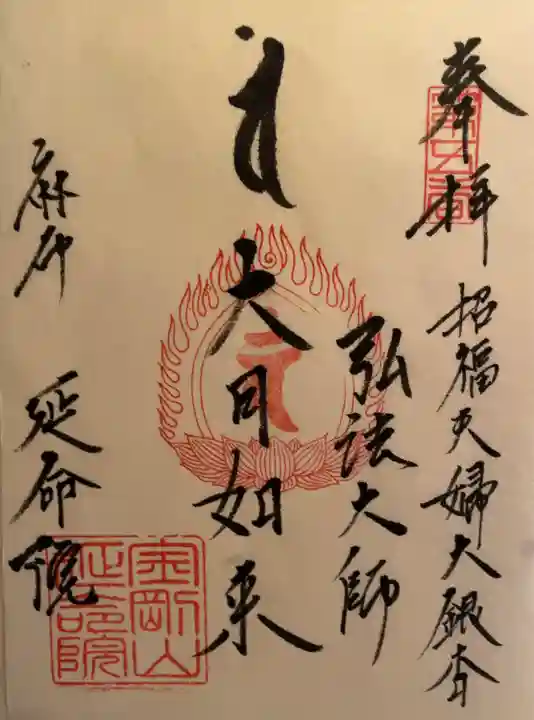 奉拝 招福夫婦大銀杏
弘法大師
大日如来
麻布 延命院
金剛山
延命院